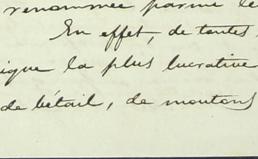 renommée parmi le
En effet, de toutes
ique la plus lucrative
de bétail, de moutons